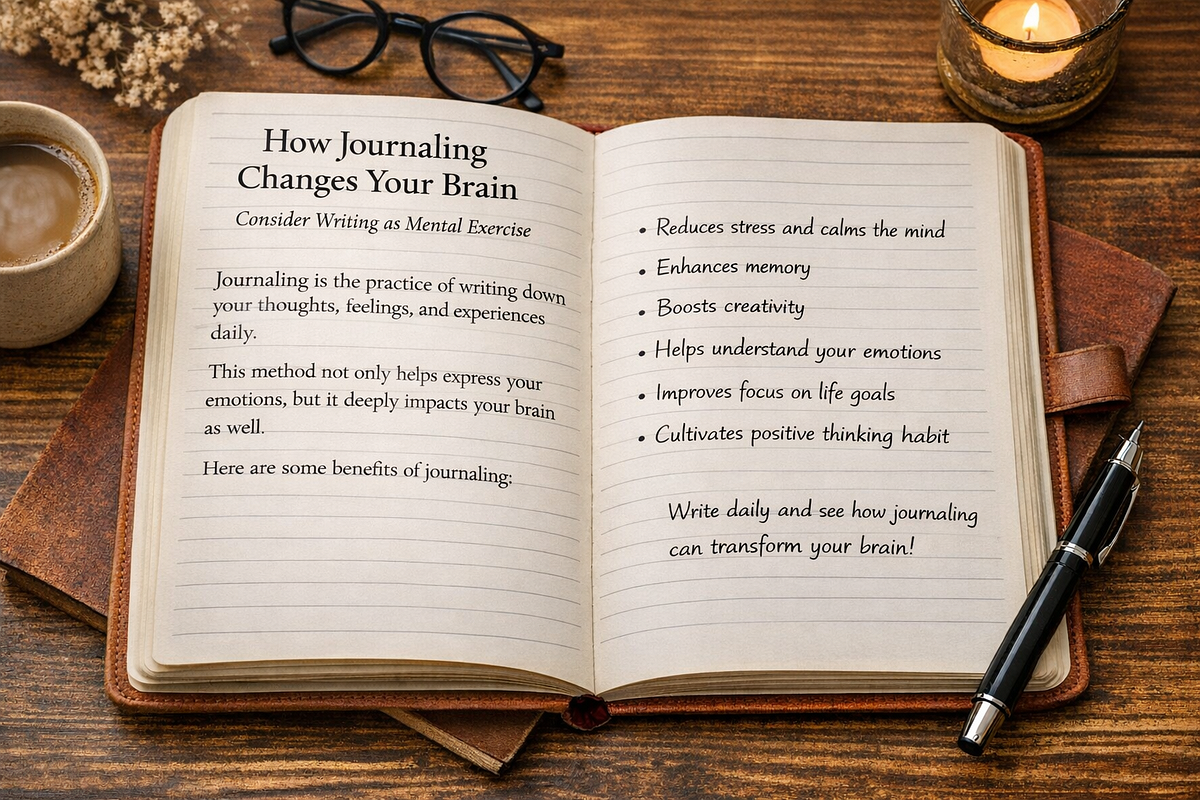 How Journaling
Changes Your Brain
Consider Writing as Mental Exercise
Journaling is the practice of writing down
your thoughts, feelings, and experiences
daily.
This method not only helps express your
emotions, but it deeply impacts your brain
as well.
Here are some benefits of journaling:
• Reduces stress and calms the mind
• Enhances memory
• Boosts creativity
• Helps understand your emotions
• Improves focus on life goals
• Cultivates positive thinking habit
Write daily and see how journaling
can transform your brain!